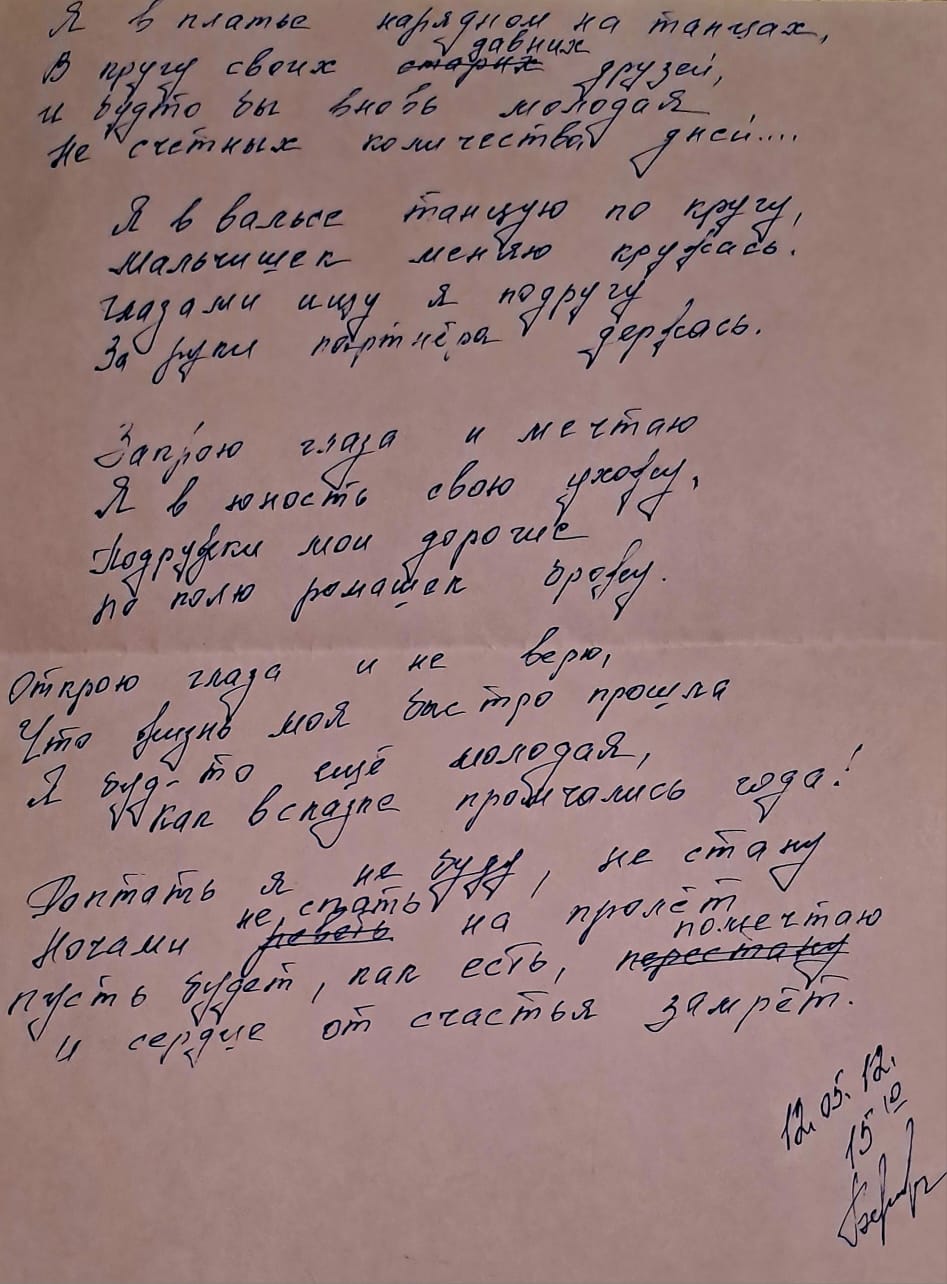 Я в платье нарядном на танцах,
В кругу своих старых давних друзей,
и будто бы вновь молодая
Не счетных количества дней....
Я в вальсе танцую по кругу,
Мальчишек меняю кружась.
Глазами ищу я подругу
За руки партнёра держась.
Закрою глаза и мечтаю
Я в юность свою ухожу,
Подружки мои дорогие
по полю ромашек брожу.
Открою глаза и не верю,
Что жизнь моя быстро прошла
Я буд-то ещё молодая,
Как в сказке промчались года!
Роптать я не буду, не стану
Ночами реветь не спать на пролёт
пусть будет, как есть, перестану помечтаю
и сердце от счастья замрёт.
12.05.12.
15 10